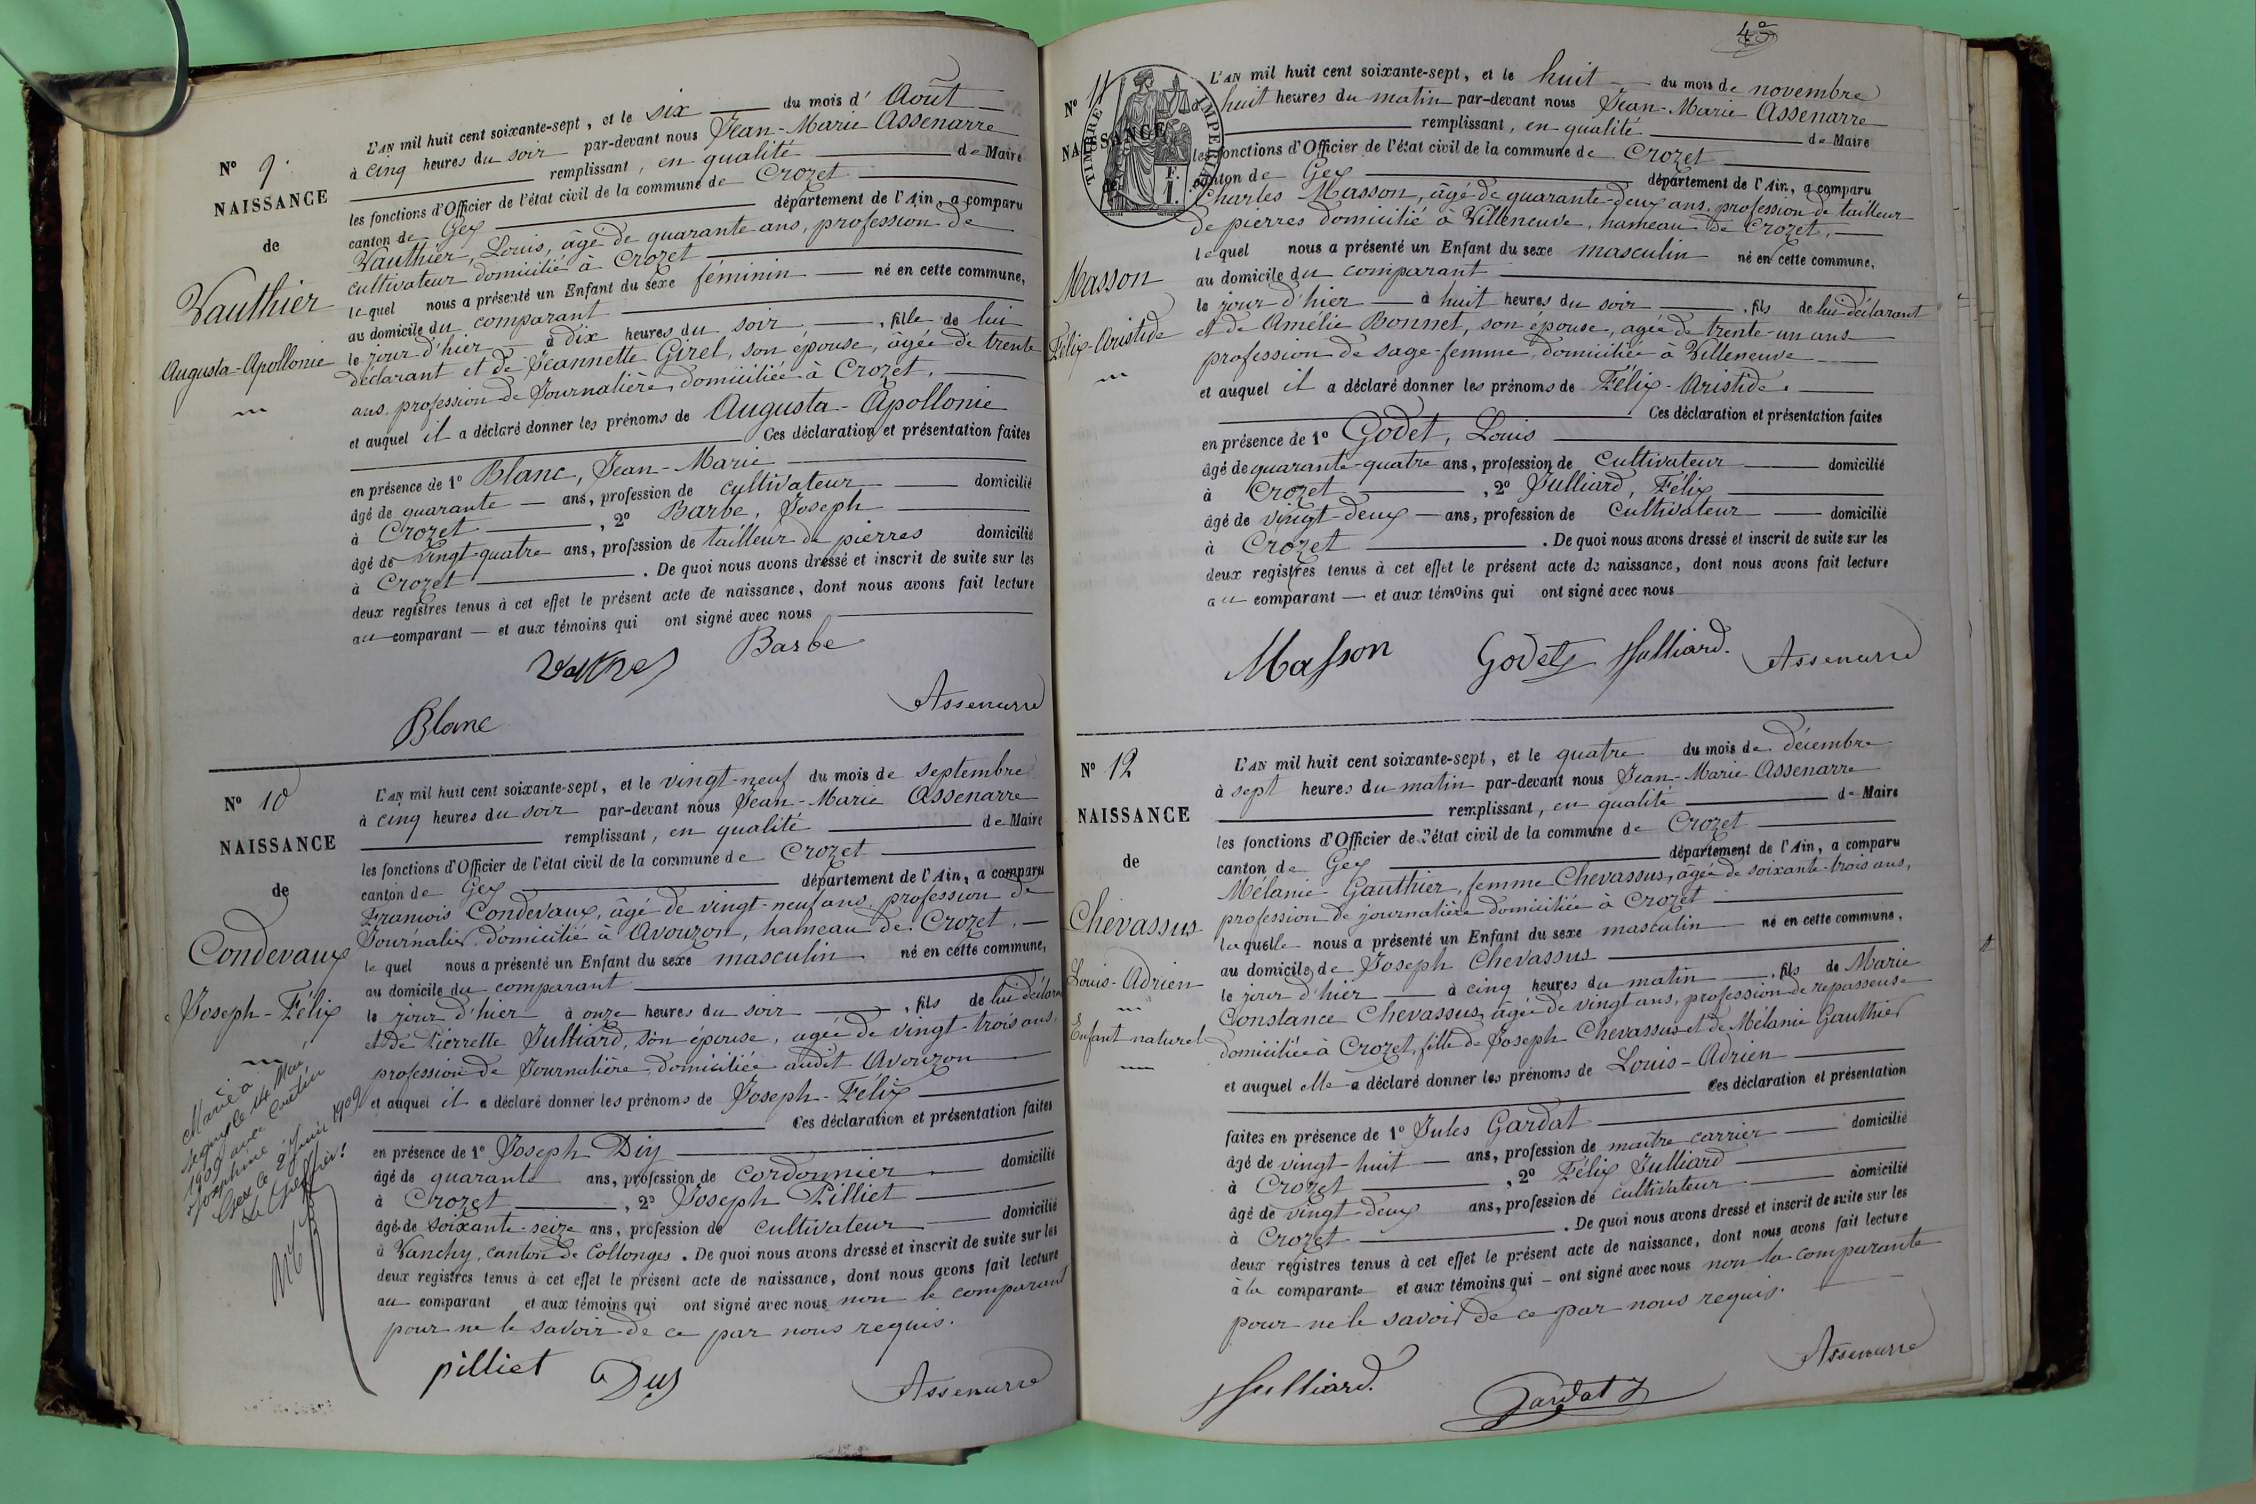 N° 9.
NAISSANCE
de
Vauthier
Augusta-Apollonie
L'AN mil huit cent soixante-sept, et le six du mois d' Août
à cinq heures du soir par-devant nous Jean-Marie Assenarre
remplissant, en qualité de Maire
les fonctions d'Officier de l'état civil de la commune de Crozet
canton de Gex département de l'Ain, a comparu
Vauthier, Louis, âgé de quarante ans, profession de
cultivateur domicilié à Crozet
lequel nous a présenté un Enfant du sexe féminin né en cette commune,
au domicile du comparant
le jour d'hier à dix heures du soir, fille de lui
déclarant et de Jeannette Girel, son épouse, âgée de trente
ans, profession de Journalière, domiciliée à Crozet.
et auquel il a déclaré donner les prénoms de Augusta-Apollonie
Ces déclaration et présentation faites
en présence de 1° Blanc, Jean-Marie
âgé de quarante ans, profession de cultivateur domicilié
à Crozet, 2° Barbe, Joseph
âgé de vingt-quatre ans, profession de tailleur de pierres domicilié
à Crozet. De quoi nous avons dressé et inscrit de suite sur les
deux registres tenus à cet effet le présent acte de naissance, dont nous avons fait lecture
au comparant et aux témoins qui ont signé avec nous
Barbe
Assenarre
Blanc
N° 10
NAISSANCE
de
Condevaux
Joseph-Félix
Marié à
le 14 Mai
1909 avec
Joséphine
Gex le 2 Juin 1909
Le Greffier:
L'AN mil huit cent soixante-sept, et le vingt-neuf du mois de septembre
à cinq heures du soir par-devant nous Jean-Marie Assenarre
remplissant, en qualité de Maire
les fonctions d'Officier de l'état civil de la commune de Crozet
canton de Gex département de l'Ain, a comparu
François Condevaux, âgé de vingt-neuf ans, profession de
Journalier, domicilié à Avouzon, hameau de Crozet.
lequel nous a présenté un Enfant du sexe masculin né en cette commune,
au domicile du comparant
le jour d'hier à onze heures du soir, fils de lui déclarant
et de Pierrette Julliard, son épouse, agée de vingt-trois ans,
profession de Journalière, domiciliée audit Avouzon
et auquel il a déclaré donner les prénoms de Joseph-Félix
Ces déclaration et présentation faites
en présence de 1° Joseph Diy
âgé de quarante ans, profession de cordonnier domicilié
à Crozet, 2° Joseph Pilliet
âgé de soixante-seize ans, profession de cultivateur domicilié
à Vanchy, canton de Collonges. De quoi nous avons dressé et inscrit de suite sur les
deux registres tenus à cet effet le présent acte de naissance, dont nous avons fait lecture
au comparant et aux témoins qui ont signé avec nous non le comparant
pour ne le savoir de ce par nous requis.
pilliet
Assenarre
N° 11
NAISSANCE
de
TIMBRE IMPERIAL
1 F.
Masson
Félix-Aristide
L'AN mil huit cent soixante-sept, et le huit du mois de novembre
à huit heures du matin par-devant nous Jean-Marie Assenarre
remplissant, en qualité de Maire
les fonctions d'Officier de l'état civil de la commune de Crozet
canton de Gex département de l'Ain, a comparu
Charles Masson, âgé de quarante-deux ans, profession de tailleur
de pierres domicilié à Villeneuve, hameau de Crozet.
lequel nous a présenté un Enfant du sexe masculin né en cette commune,
au domicile du comparant
le jour d'hier à huit heures du soir, fils de lui déclarant
et de Amélie Bonnet, son épouse, agée de trente-un ans
profession de sage-femme, domiciliée à Villeneuve
et auquel il a déclaré donner les prénoms de Félix-Aristide.
Ces déclaration et présentation faites
en présence de 1° Godet, Louis
âgé de quarante-quatre ans, profession de Cultivateur domicilié
à Crozet, 2° Julliard, Félix
âgé de vingt-deux ans, profession de Cultivateur domicilié
à Crozet. De quoi nous avons dressé et inscrit de suite sur les
deux registres tenus à cet effet le présent acte de naissance, dont nous avons fait lecture
au comparant et aux témoins qui ont signé avec nous
Masson Godet Julliard. Assenarre
N° 12
NAISSANCE
de
Chevassus
Louis-Adrien
Enfant naturel
L'AN mil huit cent soixante-sept, et le quatre du mois de décembre
à sept heures du matin par-devant nous Jean-Marie Assenarre
remplissant, en qualité de Maire
les fonctions d'Officier de l'état civil de la commune de Crozet
canton de Gex département de l'Ain, a comparu
Mélanie Gauthier, femme Chevassus, âgée de soixante-trois ans,
profession de journalière domiciliée à Crozet
laquelle nous a présenté un Enfant du sexe masculin né en cette commune,
au domicile de Joseph Chevassus
le jour d'hier à cinq heures du matin, fils de Marie
Constance Chevassus, agée de vingt ans, profession de repasseuse
domiciliée à Crozet, fille de Joseph Chevassus et de Mélanie Gauthier
et auquel elle a déclaré donner les prénoms de Louis-Adrien
Ces déclaration et présentation
faites en présence de 1° Jules Gardat
âgé de vingt-huit ans, profession de maître carrier domicilié
à Crozet, 2° Félix Julliard
âgé de vingt-deux ans, profession de cultivateur domicilié
à Crozet. De quoi nous avons dressé et inscrit de suite sur les
deux registres tenus à cet effet le présent acte de naissance, dont nous avons fait lecture
à la comparante et aux témoins qui ont signé avec nous non la comparante
pour ne le savoir de ce par nous requis.
Julliard. Gardat Assenarre